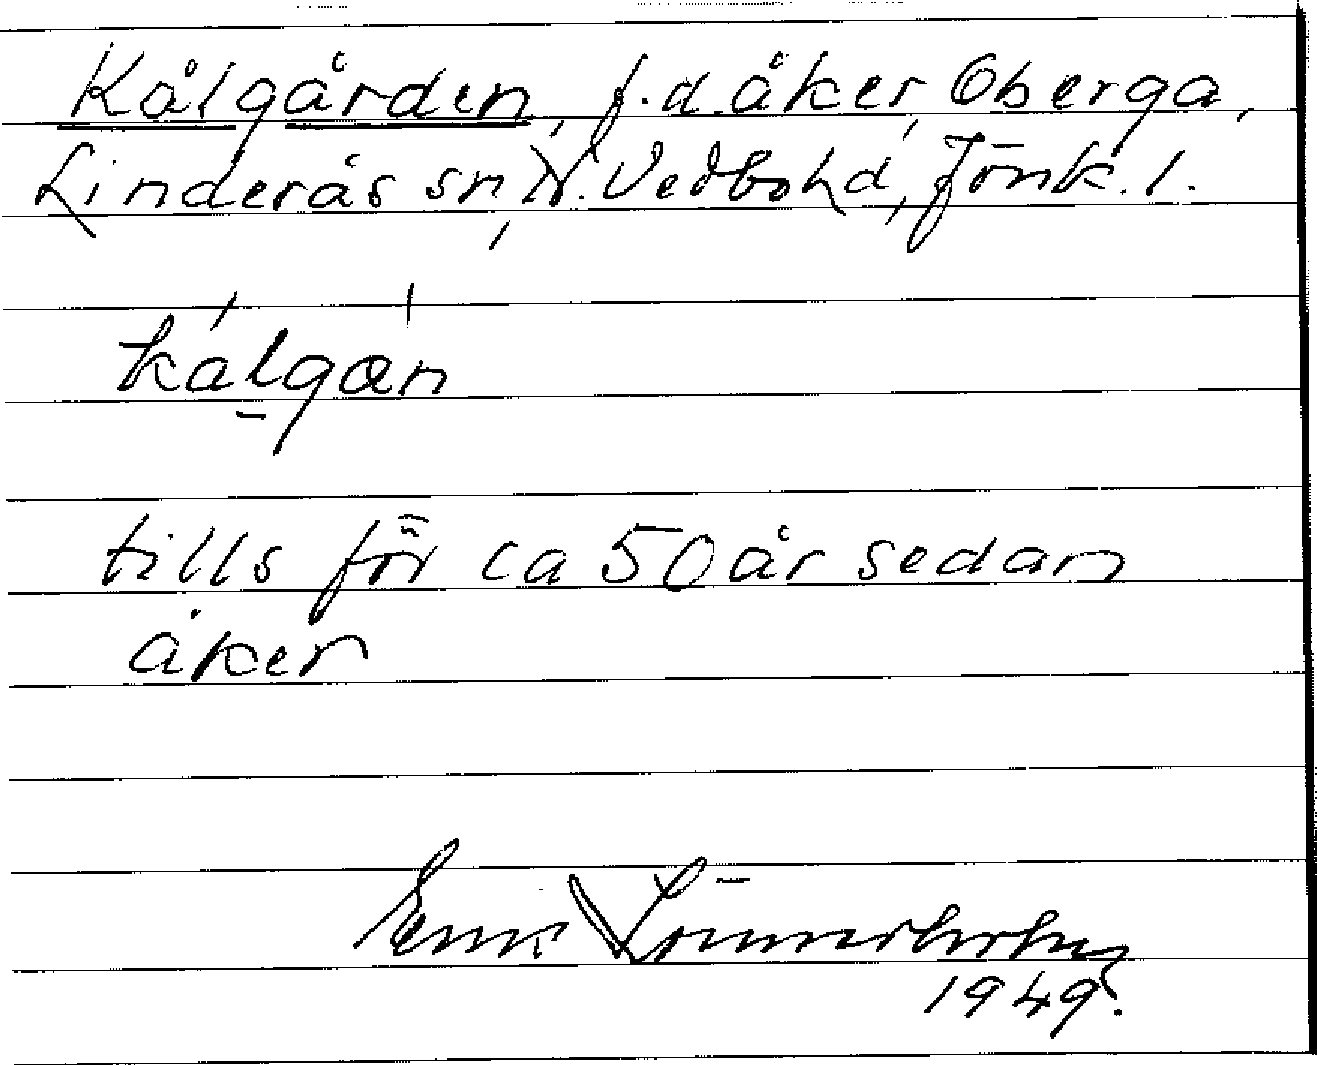 Kålgården, f.d. åker, Oberga,
Linderås sn, N. Vedbo hd, Jönk. l.
kålgan
tills för ca 50 år sedan
åker
1949.